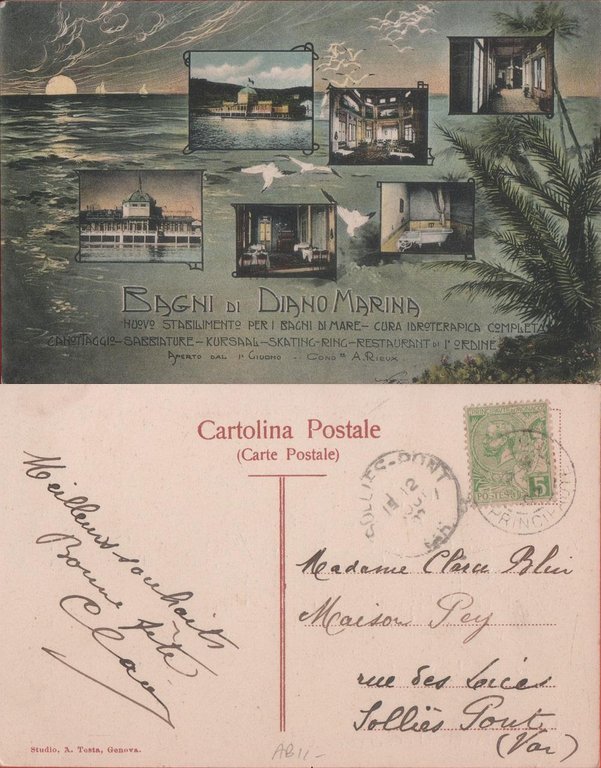 BAGNI DI DIANO MARINA
NUOVO STABILIMENTO PER I BAGNI DI MARE – CURA IDROTERAPICA COMPLETA
CANOTTAGGIO – SABBIATURE – KURSAAL – SKATING-RING – RESTAURANT DI 1° ORDINE
APERTO DAL 1° GIUGNO – COND.re A. RIOUX
Cartolina Postale
(Carte Postale)
SOLLIÈS-PONT
12
POSTES
5
PRINCIPAUTÉ
Meilleurs souhaits
Bonne fête
Madame Clara Blin
Maison Pey
rue des
Solliès Pont
(Var)
Studio, A. Testa, Genova.
AB11-